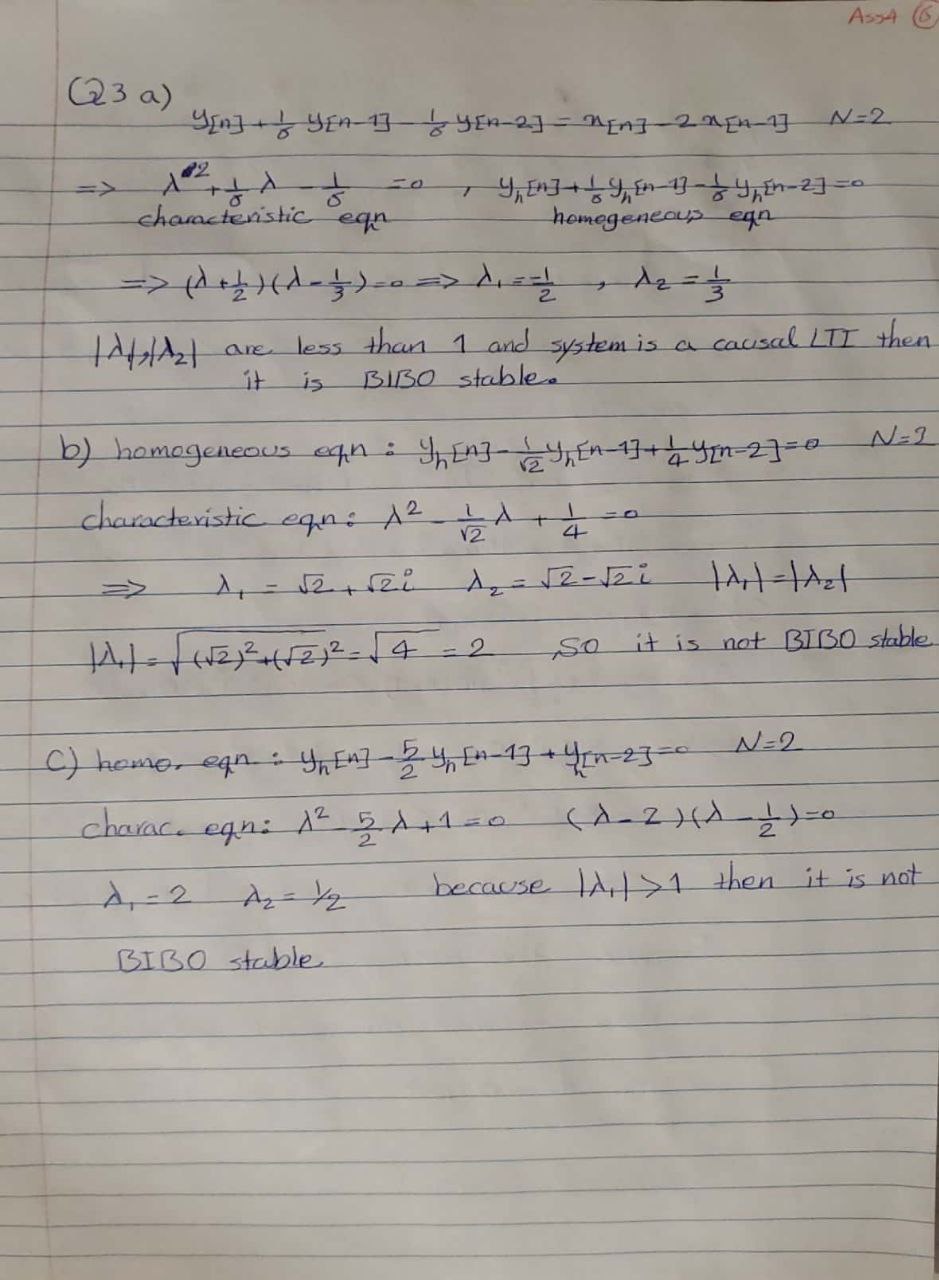 Ass4 ⑥
Q3 a)
y[n] + 1/6 y[n-1] - 1/6 y[n-2] = x[n] - 2 x[n-1] N=2
=> λ² + 1/6 λ - 1/6 = 0 , y_h[n] + 1/6 y_h[n-1] - 1/6 y_h[n-2] = 0
characteristic eqn homogeneous eqn
=> (λ + 1/2)(λ - 1/3) = 0 => λ₁ = -1/2 , λ₂ = 1/3
|λ₁|, |λ₂| are less than 1 and system is a causal LTI then
it is BIBO stable.
b) homogeneous eqn : y_h[n] - 1/√2 y_h[n-1] + 1/4 y[n-2] = 0 N=2
characteristic eqn: λ² - 1/√2 λ + 1/4 = 0
=> λ₁ = √2 + √2 i λ₂ = √2 - √2 i |λ₁| = |λ₂|
|λ₁| = √((√2)² + (√2)²) = √4 = 2 so it is not BIBO stable
c) homo. eqn : y_h[n] - 5/2 y_h[n-1] + y_h[n-2] = 0 N=2
charac. eqn: λ² - 5/2 λ + 1 = 0 (λ - 2)(λ - 1/2) = 0
λ₁ = 2 λ₂ = 1/2 because |λ₁| > 1 then it is not
BIBO stable